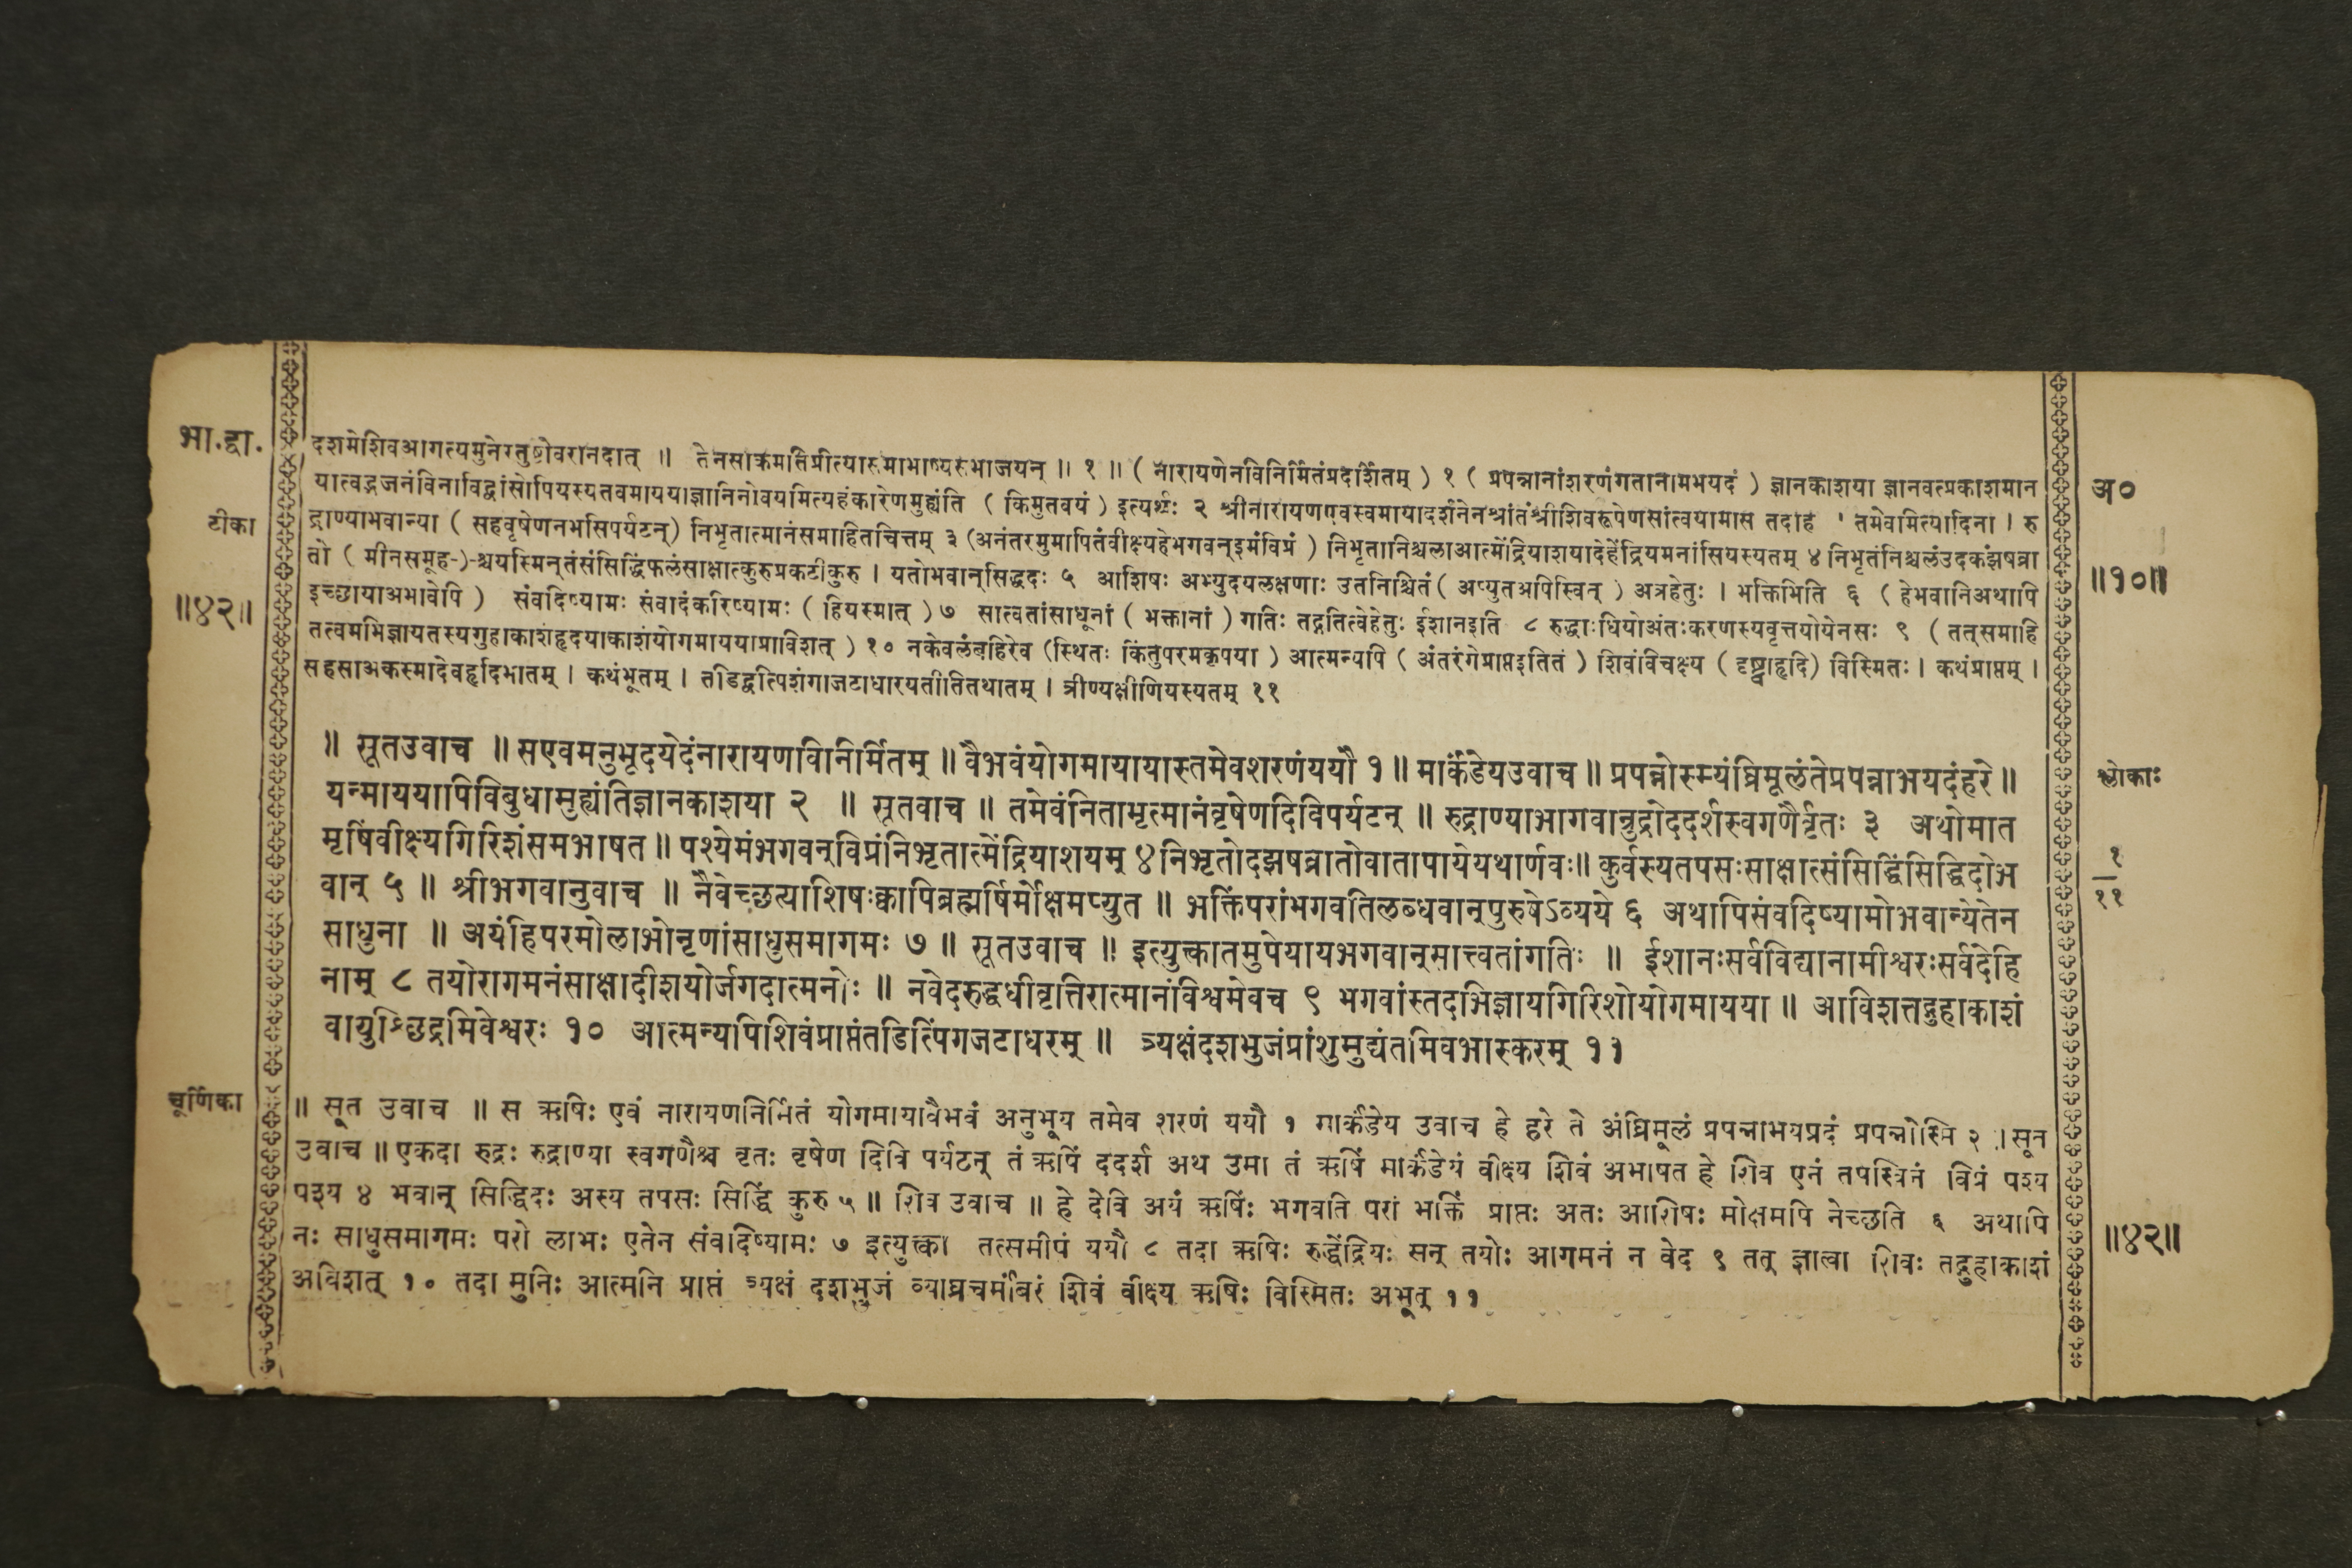 भा.द्वा.
टीका
॥४२॥
दशमेशिवआगत्यमुनेस्तुष्टोवरानदात् ॥ तेनसाकमतिप्रीत्यारुमाभाष्यसभाजयन् ॥ १ ॥ ( नारायणेनविनिर्मितंप्रदर्शितम् ) १ ( प्रपन्नानांशरणंगतानामभयदं ) ज्ञानकाशया ज्ञानवत्प्रकाशमान
यात्वद्भजनंविनाविद्वांसोपियस्यतवमायया।ज्ञानिनोवयमित्यहंकारेणमुह्यंति ( किमुतवयं ) इत्यर्थः २ श्रीनारायणएवस्वमायादर्शनेनश्रांतंश्रीशिवरूपेणसांत्वयामास तदाह ' तमेवमित्यादिना । रु
द्राण्याभवान्या ( सहवृषेणनभसिपर्यटन्) निभृतात्मानंसमाहितचित्तम् ३ (अनंतरमुमापितंवीक्ष्यहेभगवन्इमंविप्रं ) निभृतानिश्चलाआत्मेंद्रियाशयादेहेंद्रियमनांसियस्यतम् ४ निभृतंनिश्चलंउदकंझषव्रा
तो ( मीनसमूह-)-श्चयस्मिन्तंसंसिद्धिंफलंसाक्षात्कुरुप्रकटीकुरु । यतोभवान्सिद्धदः ५ आशिषः अभ्युदयलक्षणाः उतनिश्चितं ( अप्युतअपिस्वित् ) अत्रहेतुः । भक्तिमिति ६ ( हेभवानिअथापि
इच्छायाअभावेपि ) संवदिष्यामः संवादंकरिष्यामः ( हियस्मात् ) ७ सात्वतांसाधूनां ( भक्तानां ) गतिः तद्गतित्वेहेतुः ईशानइति ८ रुद्धाःधियोअंतःकरणस्यवृत्तयोयेनसः ९ ( तत्समाहि
तत्वमभिज्ञायतस्यगुहाकाशंहृदयाकाशंयोगमाययाप्राविशत् ) १० नकेवलंबहिरेव (स्थितः किंतुपरमकृपया ) आत्मन्यपि ( अंतरंगेप्राप्तइतितं ) शिवंविचक्ष्य ( दृष्ट्वाहृदि) विस्मितः । कथंप्राप्तम् ।
सहसाअकस्मादेवहृदिभातम् । कथंभूतम् । तडिद्वत्पिशंगाजटाधारयतीतितथातम् । त्रीण्यक्षीणियस्यतम् ११
अ०
॥१०॥
॥ सूतउवाच ॥ सएवमनुभूदयेदंनारायणविनिर्मितम् ॥ वैभवंयोगमायायास्तमेवशरणंययौ १ ॥ मार्कंडेयउवाच ॥ प्रपन्नोस्म्यंघ्रिमूलंतेप्रपन्नाभयदंहरे ॥
यन्माययापिविबुधामुह्यंतिज्ञानकाशया २ ॥ सूतवाच ॥ तमेवंनिताभृत्मानंवृषेणदिविपर्यटन् ॥ रुद्राण्याभागवान्रुद्रोददर्शस्वगणैर्वृतः ३ अथोमात
मृषिंवीक्ष्यगिरिशंसमभाषत ॥ पश्येमंभगवन्विप्रंनिभृतात्मेंद्रियाशयम् ४ निभृतोदझषव्रातोवातापायेयथार्णवः॥ कुर्वस्यतपसःसाक्षात्संसिद्धिंसिद्धिदोभ
वान् ५ ॥ श्रीभगवानुवाच ॥ नैवेच्छत्याशिषःक्वापिब्रह्मर्षिर्मोक्षमप्युत ॥ भक्तिंपरांभगवतिलब्धवान्पुरुषेऽव्यये ६ अथापिसंवदिष्यामोभवान्येतेन
साधुना ॥ अयंहिपरमोलाभोनृणांसाधुसमागमः ७ ॥ सूतउवाच ॥ इत्युक्त्कातमुपेयायभगवान्सात्त्वतांगतिः ॥ ईशानःसर्वविद्यानामीश्वरःसर्वदेहि
नाम् ८ तयोरागमनंसाक्षादीशयोर्जगदात्मनोः ॥ नवेदरुद्धधीवृत्तिरात्मानंविश्वमेवच ९ भगवांस्तदभिज्ञायगिरिशोयोगमायया ॥ आविशत्तद्गुहाकाशं
वायुश्छिद्रमिवेश्वरः १० आत्मन्यपिशिवंप्राप्तंतडित्पिंगजटाधरम् ॥ त्र्यक्षंदशभुजंप्रांशुमुद्यंतमिवभास्करम् ११
श्लोकाः
१
११
चूर्णिका
॥ सूत उवाच ॥ स ऋषिः एवं नारायणनिर्मितं योगमायावैभवं अनुभूय तमेव शरणं ययौ १ मार्कंडेय उवाच हे हरे ते अंघ्रिमूलं प्रपन्नाभयप्रदं प्रपन्नोस्मि २ ।सूत
उवाच ॥ एकदा रुद्रः रुद्राण्या स्वगणैश्च वृतः वृषेण दिवि पर्यटन् तं ऋषिं ददर्श अथ उमा तं ऋषिं मार्कंडेयं वीक्ष्य शिवं अभाषत हे शिव एनं तपस्विनं विप्रं पश्य
पश्य ४ भवान् सिद्धिदः अस्य तपसः सिद्धिं कुरु ५ ॥ शिव उवाच ॥ हे देवि अयं ऋषिः भगवति परां भक्तिं प्राप्तः अतः आशिषः मोक्षमपि नेच्छति ६ अथापि
नः साधुसमागमः परो लाभः एतेन संवादिष्यामः ७ इत्युक्त्का तत्समीपं ययौ ८ तदा ऋषिः रुद्धेंद्रियः सन् तयोः आगमनं न वेद ९ तत् ज्ञात्वा शिवः तद्गुहाकाशं
अविशत् १० तदा मुनिः आत्मनि प्राप्तं त्र्यक्षं दशभुजं व्याघ्रचर्मांबरं शिवं वीक्ष्य ऋषिः विस्मितः अभूत् ११
॥४२॥